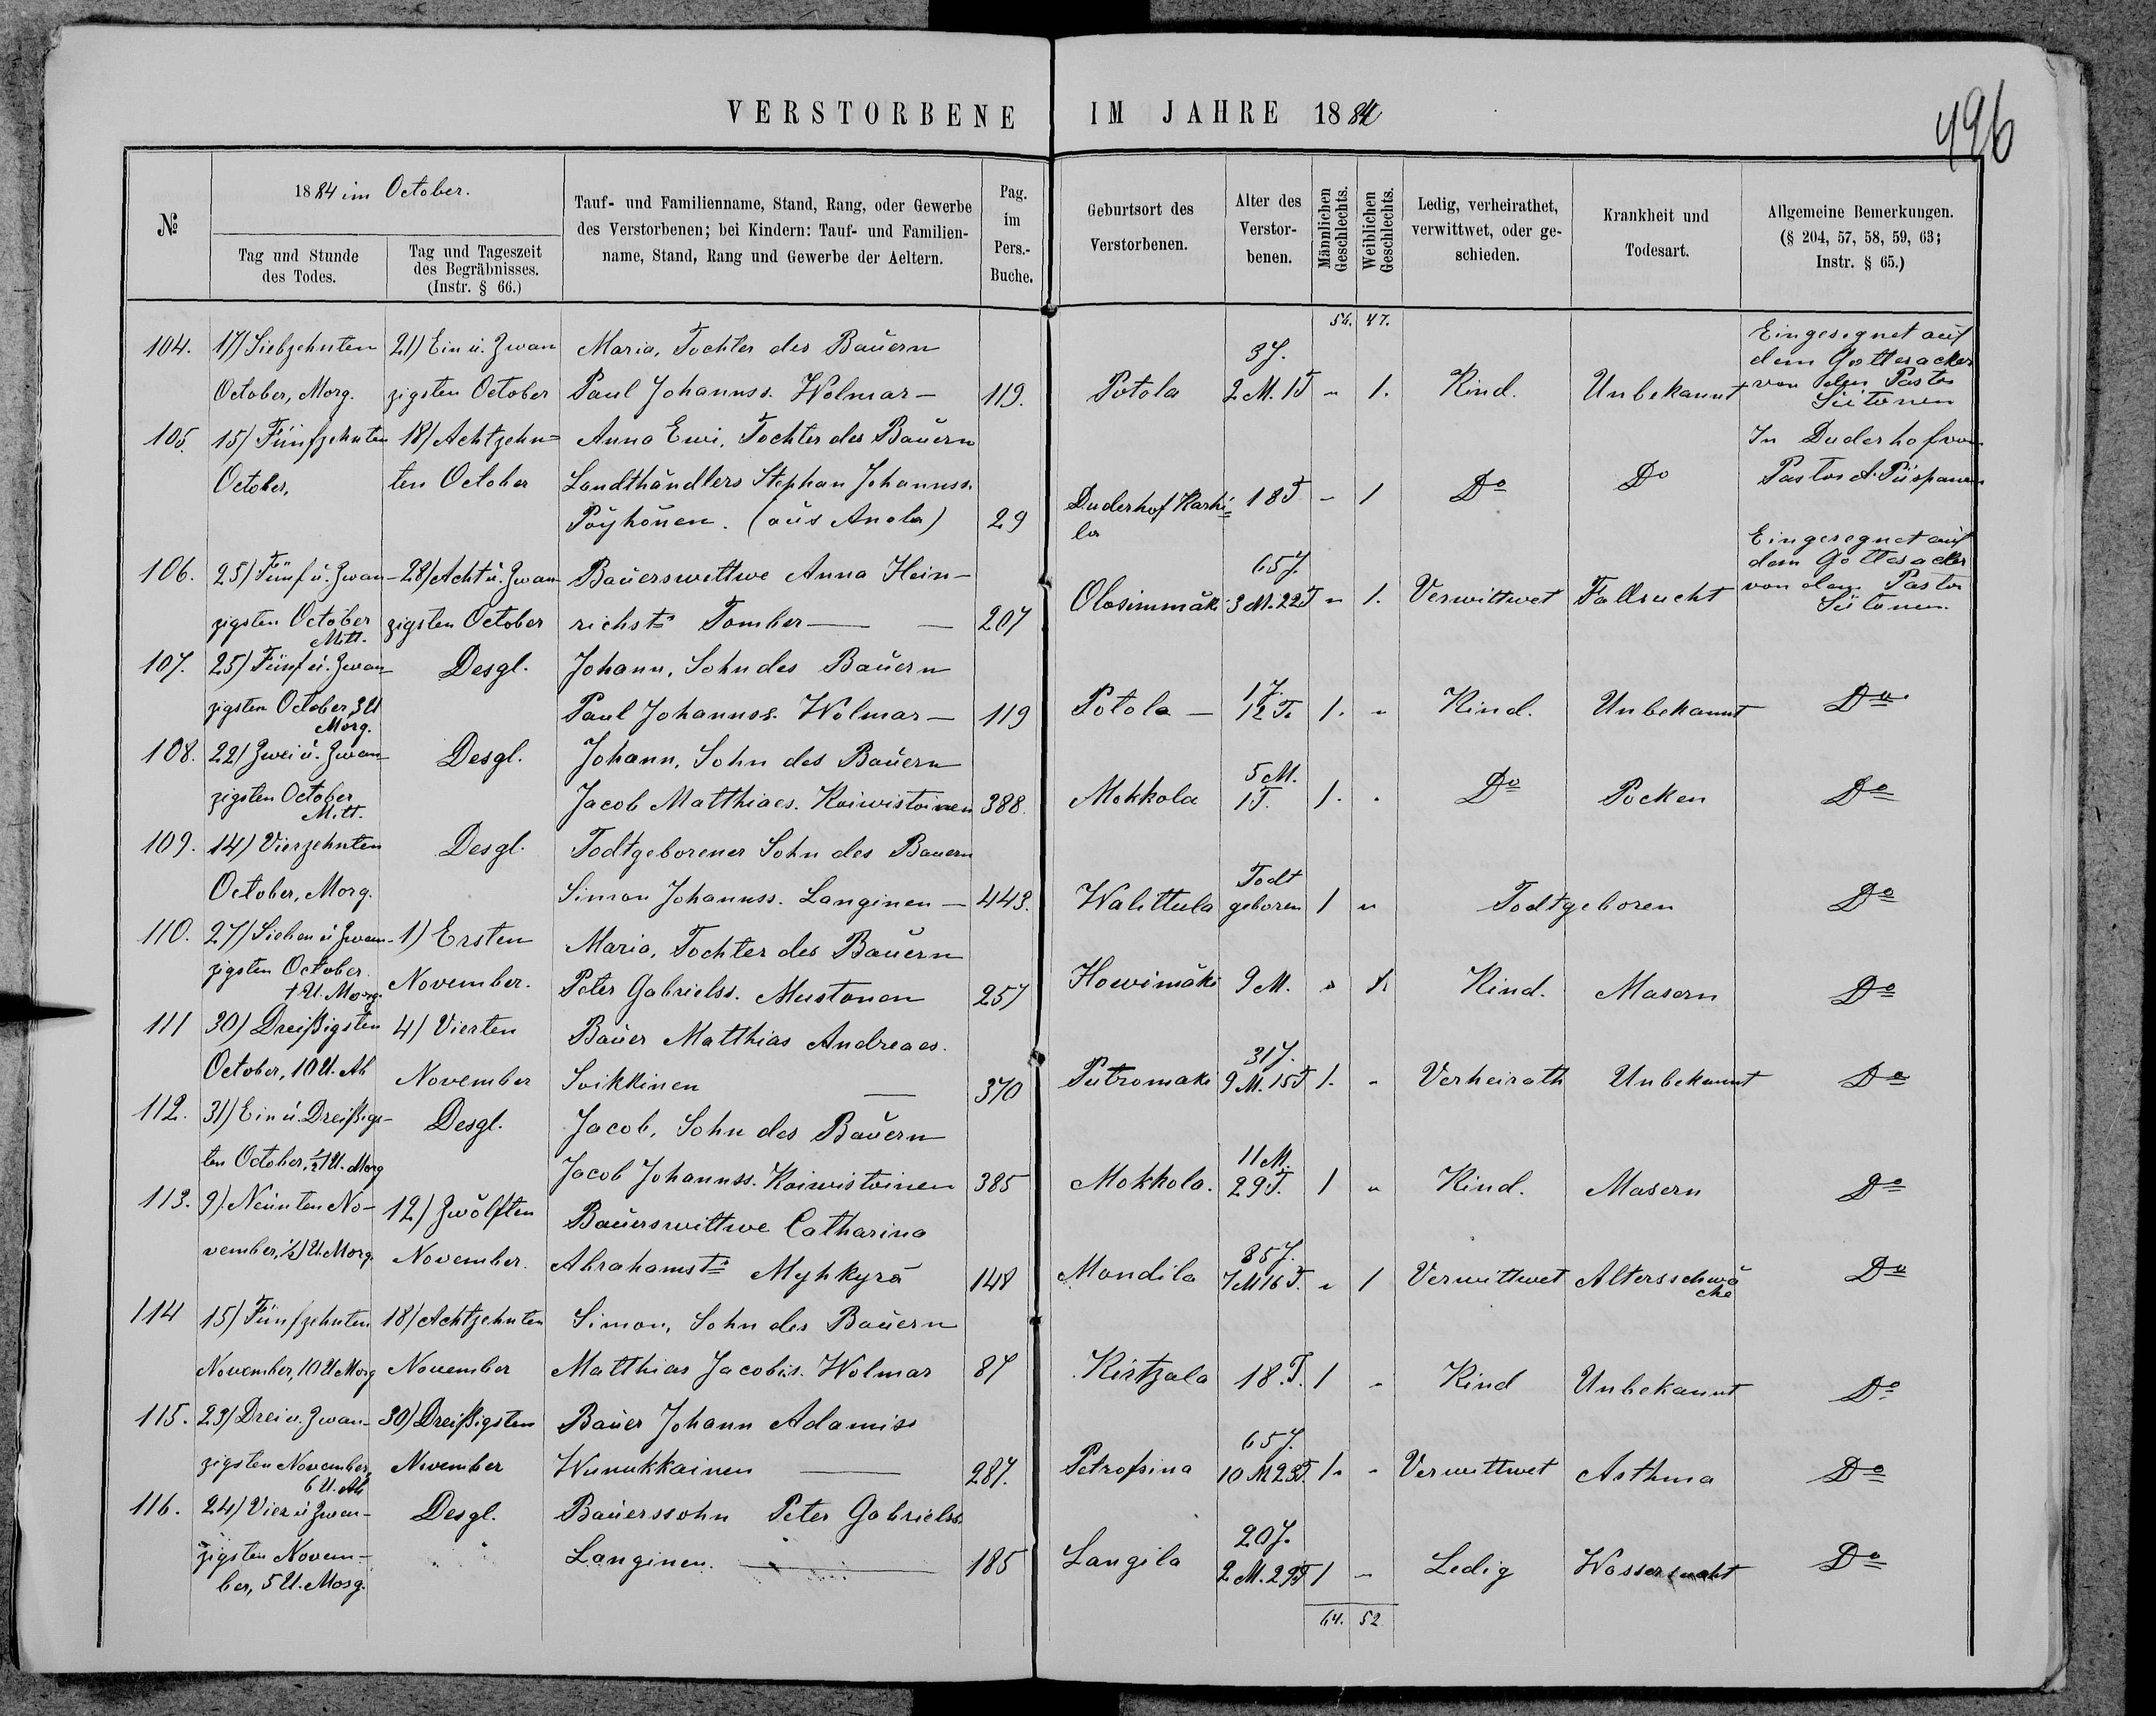 VERSTORBENE IM JAHRE 1884
496
№
1884 im October.
Tag und Stunde
des Todes.
Tag und Tageszeit
des Begräbnisses.
(Instr. § 66.)
Tauf- und Familienname, Stand, Rang, oder Gewerbe
des Verstorbenen; bei Kindern: Tauf- und Familien-
name, Stand, Rang und Gewerbe der Aeltern.
Pag.
im
Pers.-
Buche.
Geburtsort des
Verstorbenen.
Alter des
Verstor-
benen.
Männlichen
Geschlechts.
Weiblichen
Geschlechts.
Ledig, verheirathet,
verwittwet, oder ge-
schieden.
Krankheit und
Todesart.
Allgemeine Bemerkungen.
(§ 204, 57, 58, 59, 63;
Instr. § 65.)
54. 47.
104. 17) Siebzehnten 21) Ein u. Zwan Maria, Tochter des Bauern 3 J. Eingesegnet auf
dem Gottesacker
October, Morg. zigsten October Paul Johannss. Wolmar — 119. Potola 2 M. 1 T. „ 1. Kind. Unbekannt von dem Pastor
Siitonen
105. 15) Fünfzehnten 18) Achtzehn= Anna Ewi, Tochter des Bauern In Duderhof von
October, ten October Landthändlers Stephan Johannss. Duderhof Karhi= 18 T – 1 Do Do Pastor A. Püspanen
Pöyhönen. (aus Anola) 29 la
Eingesegnet auf
106. 25) Fünf u. Zwan- 28) Acht u. Zwan Bauerswittwe Anna Hein- 65 J. dem Gottesacker
zigsten October zigsten October richst. Tomber — 207 Olosimmäki 3 M. 22 T „ 1. Verwittwet Fallsucht von dem Pastor
Mitt. Siitonen.
107. 25) Fünf u. Zwan- Desgl. Johann, Sohn des Bauern 1 J.
zigsten October 3 U Paul Johannss. Wolmar — 119 Potola — 12 T. 1. „ Kind. Unbekannt Do
Morg.
108. 22) Zwei u. Zwan- Desgl. Johann, Sohn des Bauern 5 M.
zigsten October Jacob Matthiaes. Koiwistoinen 388. Mokkola 1 T. 1. „ Do Pocken Do
Mitt.
109. 14) Vierzehnten Desgl. Todtgeborener Sohn des Bauern Todt
October, Morg. Simon Johannss. Langinen — 443. Walittula geboren 1 „ Todtgeboren Do
110. 27) Sieben u Zwan- 1) Ersten Maria, Tochter des Bauern
zigsten October November. Peter Gabrielss. Mustonen 257 Howimäki 9 M. „ 1. Kind. Masern Do
1 U. Morg.
111 30) Dreißigsten 4) Vierten Bauer Matthias Andreaes. 31 J.
October, 10 U. Ab November Soikkinen — 370 Putromäki 9 M. 15 T 1. „ Verheirath Unbekannt Do
112. 31) Ein u. Dreißigs- Desgl. Jacob, Sohn des Bauern 11 M.
ten October, ½1 U. Morg Jacob Johannss. Koiwistoinen 385 Mokkola. 29 T. 1 „ Kind. Masern Do
113. 9) Neunten No- 12) Zwölften Bauerswittwe Catharina 85 J.
vember, ½1 U. Morg. November. Abrahamst. Myhkyrä 148 Mondila 7 M 16 T. „ 1 Verwittwet Altersschwä
che Do
114 15) Fünfzehnten 18) Achtzehnten Simon, Sohn des Bauern
November, 10 U Morg November Matthias Jacobis. Wolmar 87 Kirtzala 18. T. 1 „ Kind Unbekannt Do
115. 23) Drei u. Zwan- 30) Dreißigsten Bauer Johann Adamiss 65 J.
zigsten November, November Wunukkainen — 287. Petrofsina 10 M 23 T. 1. „ Verwittwet Asthma Do
6 U. Ab
116. 24) Vier u Zwan- Desgl. Bauerssohn Peter Gabrielss. 20 J.
zigsten Novem- Langinen. — 185 Langila 2 M. 29 T 1 „ Ledig Wassersucht Do
ber, 5 U. Morg.
64. 52